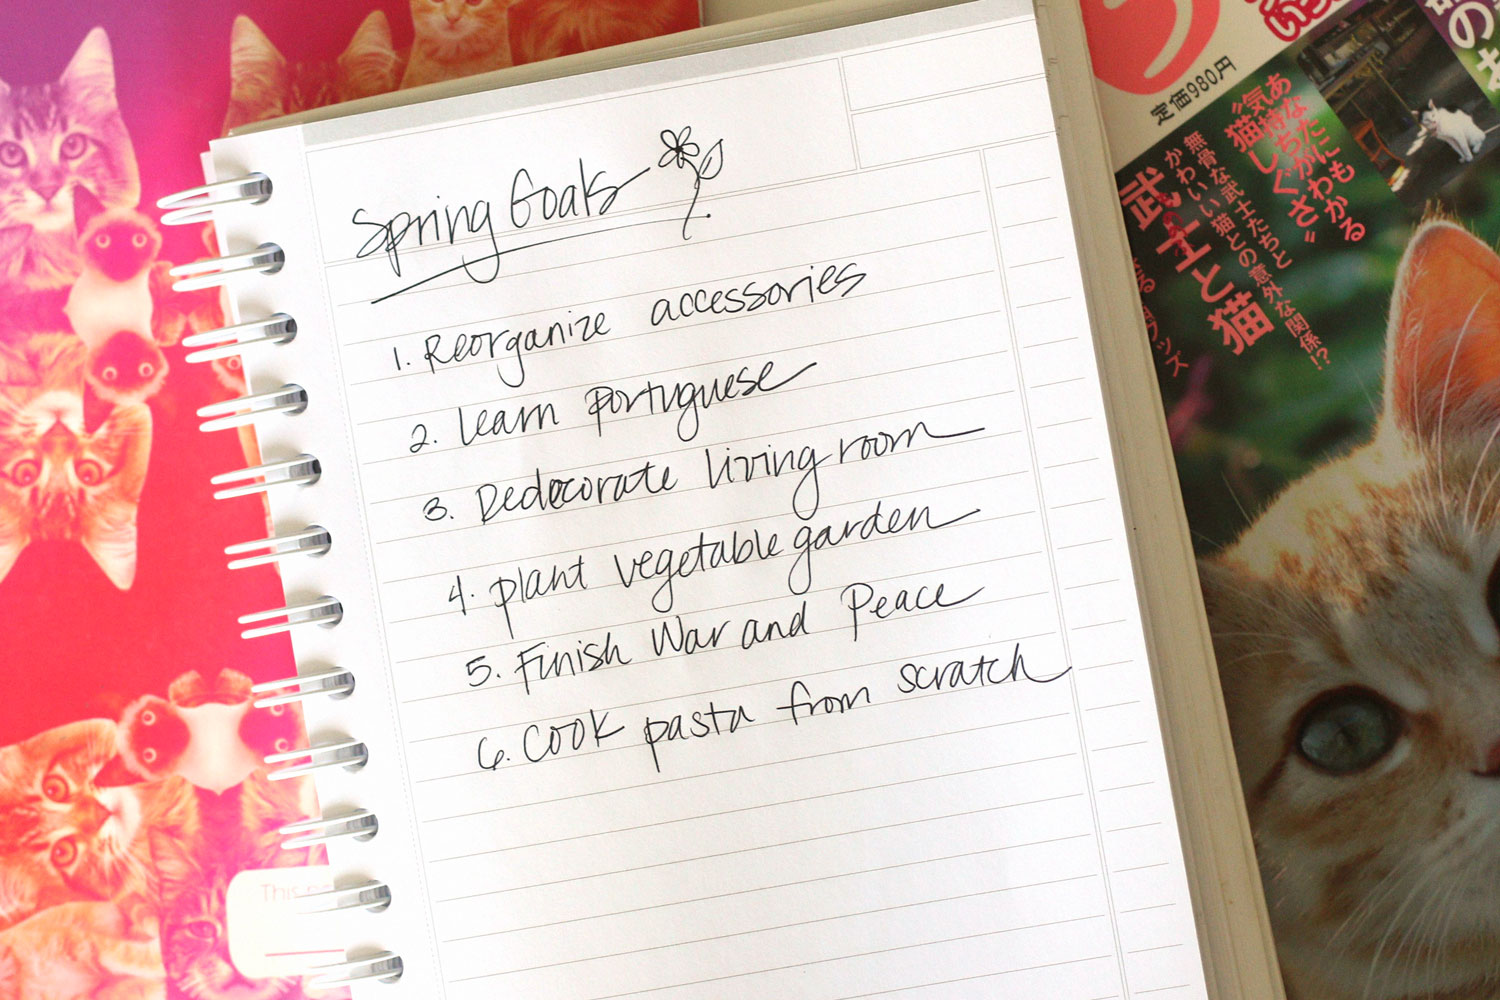 Spring Goals
1. Reorganize accessories
2. Learn portuguese
3. Dedocorate living room
4. plant vegetable garden
5. Finish War and Peace
6. Cook pasta from scratch
This
定価980円
あなたにもわかる
"気持ちがわかる
猫しぐさ"
無骨な武士たちと
かわいい猫との意外な関係!?
武士と猫